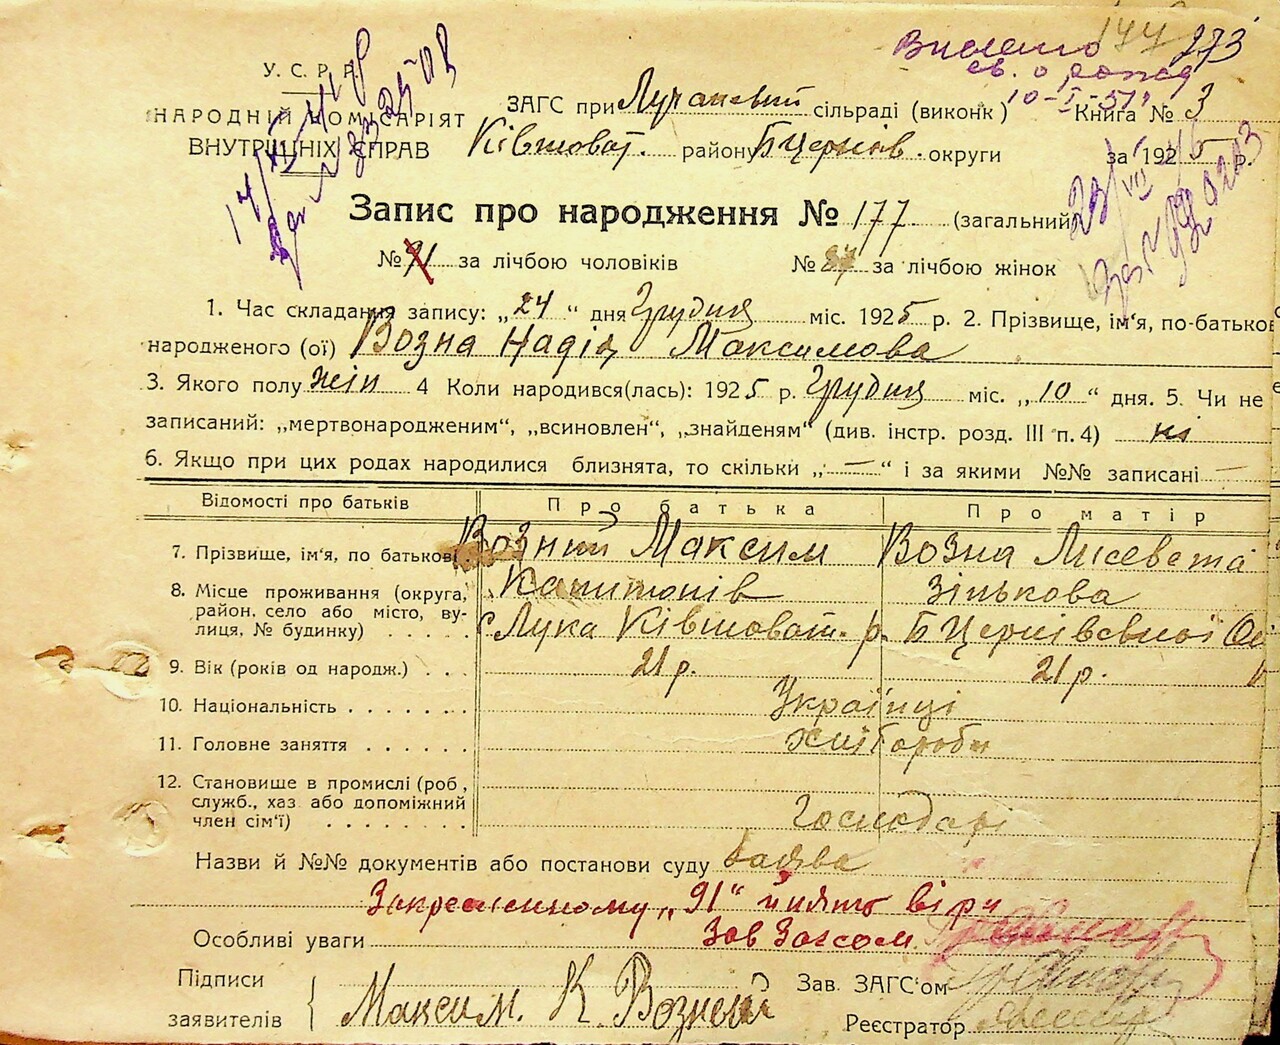 177 273
Вислано
св. о рожд
10-I-51г
У. С. Р. Р.
НАРОДНІЙ КОМІСАРІЯТ
ВНУТРІШНІХ СПРАВ
ЗАГС при Лучанський сільраді (виконк) Книга № 3
Ківшоват. району БЦерків. округи за 1925 р.
Запис про народження № 177 (загальний)
№ 91 за лічбою чоловіків № 87 за лічбою жінок
1. Час складання запису: „24“ дня Грудня міс. 1925 р. 2. Прізвище, ім'я, по-батькові
народженого (ої) Возна Надія Максимова
3. Якого полу жін 4 Коли народився(лась): 1925 р. Грудня міс. „10“ дня. 5. Чи не
записаний: „мертвонародженим“, „всиновлен“, „знайденям“ (див. інстр. розд. III п. 4) ні
6. Якщо при цих родах народилися близнята, то скільки „—“ і за якими №№ записані —
Відомості про батьків Про батька Про матір
7. Прізвище, ім'я, по батькові. Возний Максим Возна Лисевета
Капитонів Зінькова
8. Місце проживання (округа,
район, село або місто, ву-
лиця, № будинку) . . . . . с. Лука Ківшоват. р. БЦерківської Ок
9. Вік (років од народж.) . . . 21 р. 21 р.
10. Національність . . . . . . . Українці
11. Головне заняття . . . . . . Хлібороби
12. Становище в промислі (роб,
служб., хаз або допоміжний
член сім'ї) . . . . . . . . Господарі
Назви й №№ документів або постанови суду заява
Закресленному „91“ йняти віри
Особливі уваги Зав Загсом
Підписи
заявителів Максим. К. Возный
Зав. ЗАГС'ом
Реєстратор